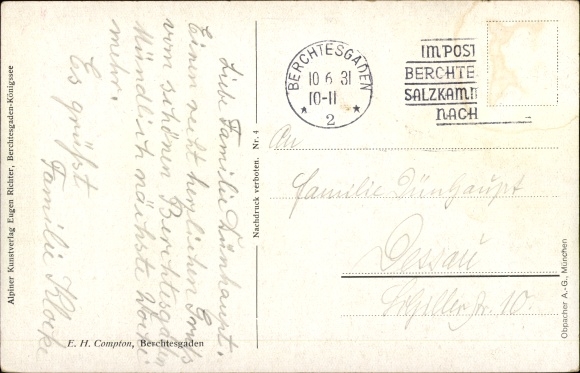 Liebe Familie Dünhaupt.
Einen recht herzlichen Gruß
vom schönen Berchtesgaden
Mündlich nächste Woche
mehr.
Es grüßt
Familie
E. H. Compton, Berchtesgaden
Alpiner Kunstverlag Eugen Richter, Berchtesgaden-Königssee
Nachdruck verboten. Nr. 4
BERCHTESGADEN
10 6 31
10-11
* 2 *
IM POST
BERCHTE
SALZKAM
NACH
An
Familie Dünhaupt
Dessau
Schillerstr. 10.
Obpacher A.-G., München